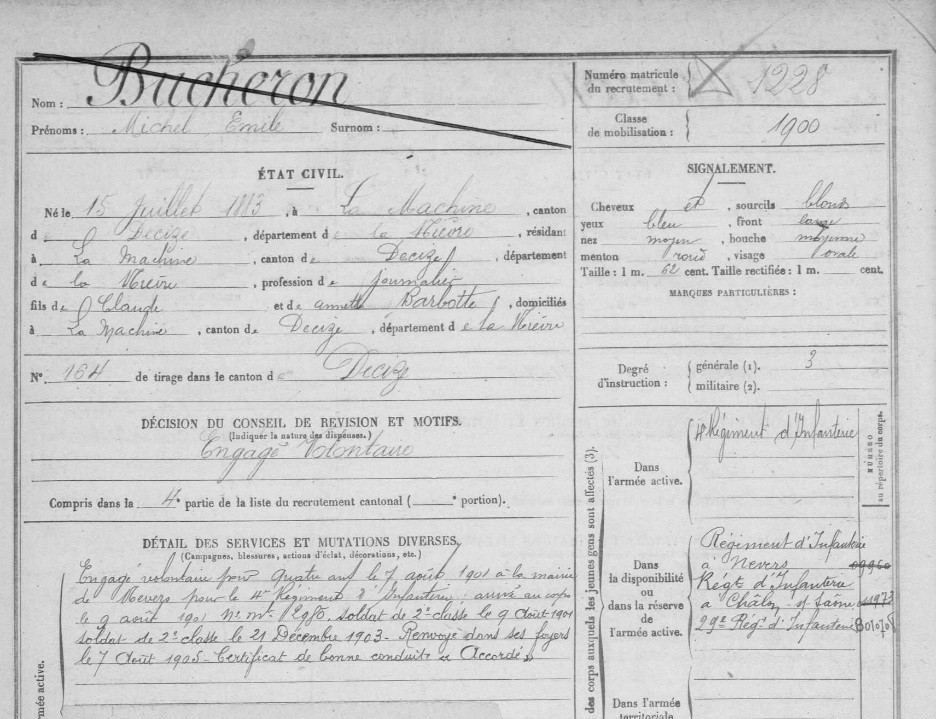 Nom : Bucheron
Prénoms : Michel Emile Surnom :
ÉTAT CIVIL.
Né le 15 Juillet 1883, à La Machine, canton
de Decize, département de la Nièvre, résidant
à La Machine, canton de Decize, département
de la Nièvre, profession de journalier
fils de Claude et de annette Barbotte, domiciliés
à La Machine, canton de Decize, département de la Nièvre
N° 164 de tirage dans le canton de Decize
DÉCISION DU CONSEIL DE REVISION ET MOTIFS.
(Indiquer la nature des dispenses.)
Engagé Volontaire
Compris dans la 4e partie de la liste du recrutement cantonal ( e portion).
DÉTAIL DES SERVICES ET MUTATIONS DIVERSES.
(Campagnes, blessures, actions d'éclat, décorations, etc.)
Engagé volontaire pour quatre ans le 7 août 1901 à la mairie
de Nevers pour le 4e Régiment d'Infanterie : arrivé au corps
le 9 août 1901 soldat de 2e classe le 9 Août 1901
soldat de 2e classe le 21 Décembre 1903 - Renvoyé dans ses foyers
le 7 Août 1905 - Certificat de bonne conduite "Accordé"
mée active.
Numéro matricule
du recrutement : 1228
Classe
de mobilisation : 1900
SIGNALEMENT.
Cheveux et, sourcils blonds
yeux bleu, front large
nez moyen, bouche moyenne
menton rond, visage ovale
Taille : 1 m. 62 cent. Taille rectifiée : 1 m. cent.
MARQUES PARTICULIÈRES :
Degré
d'instruction :
générale (1). 3
militaire (2).
des corps auxquels les jeunes gens sont affectés (3).
Dans
l'armée active.
4e Régiment d'Infanterie
au répertoire du corps.
Dans
la disponibilité
ou
dans la réserve
de
l'armée active.
Régiment d'Infanterie
à Nevers
Régt d'Infanterie
à Châlon s/ Saône
29e Régt d'Infanterie
Dans l'armée
territoriale